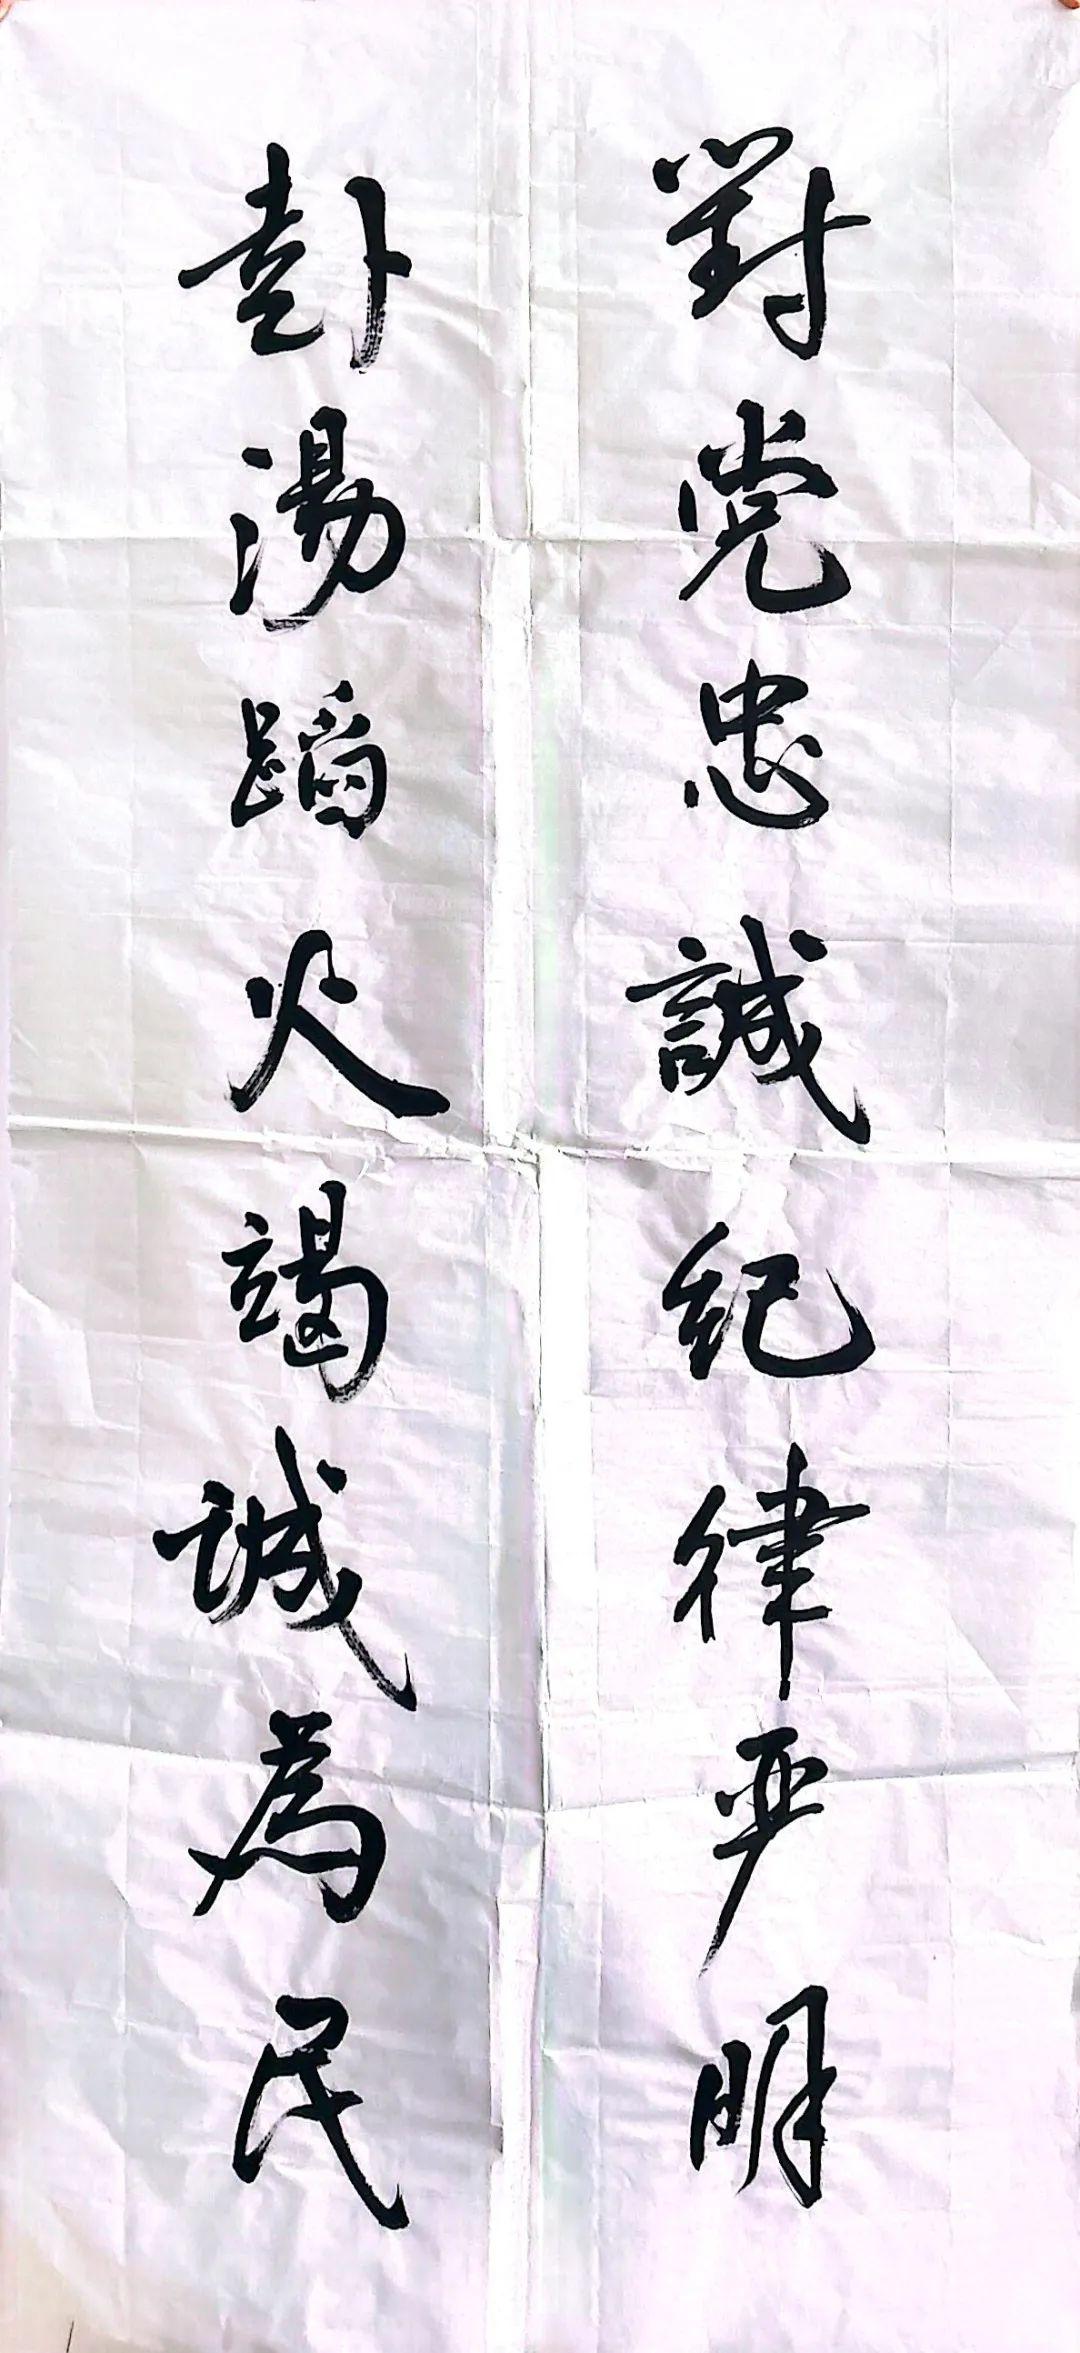 對党忠誠纪律严明
赴湯蹈火竭诚為民